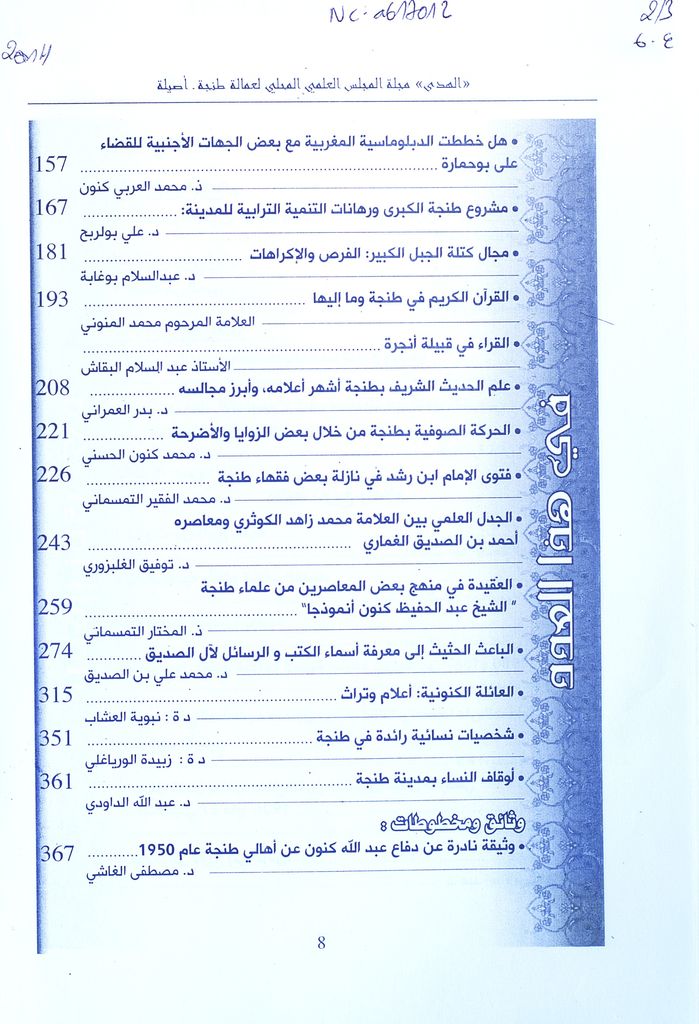 Nc: a617012
2/3
6.ع
2014
«الهدى» مجلة المجلس العلمي المحلي لعمالة طنجة. أصيلة
• هل خططت الدبلوماسية المغربية مع بعض الجهات الأجنبية للقضاء
على بوحمارة ........ 157
ذ. محمد العربي كنون
• مشروع طنجة الكبرى ورهانات التنمية الترابية للمدينة: ........ 167
د. علي بولربح
• مجال كتلة الجبل الكبير: الفرص والإكراهات ........ 181
د. عبدالسلام بوغابة
• القرآن الكريم في طنجة وما إليها ........ 193
العلامة المرحوم محمد المنوني
• القراء في قبيلة أنجرة ........
الأستاذ عبد السلام البقاش
• علم الحديث الشريف بطنجة أشهر أعلامه، وأبرز مجالسه ........ 208
د. بدر العمراني
• الحركة الصوفية بطنجة من خلال بعض الزوايا والأضرحة ........ 221
د. محمد كنون الحسني
• فتوى الإمام ابن رشد في نازلة بعض فقهاء طنجة ........ 226
د. محمد الفقير التمسماني
• الجدل العلمي بين العلامة محمد زاهد الكوثري ومعاصره
أحمد بن الصديق الغماري ........ 243
د. توفيق الغلبزوري
• العقيدة في منهج بعض المعاصرين من علماء طنجة
" الشيخ عبد الحفيظ كنون أنموذجا" ........ 259
ذ. المختار التمسماني
• الباعث الحثيث إلى معرفة أسماء الكتب و الرسائل لآل الصديق ........ 274
د. محمد علي بن الصديق
• العائلة الكنونية: أعلام وتراث ........ 315
د ة : نبوية العشاب
• شخصيات نسائية رائدة في طنجة ........ 351
د ة : زبيدة الورياغلي
• أوقاف النساء بمدينة طنجة ........ 361
د. عبد الله الداودي
وثائق ومخطوطات :
• وثيقة نادرة عن دفاع عبد الله كنون عن أهالي طنجة عام 1950 ........ 367
د. مصطفى الغاشي
8